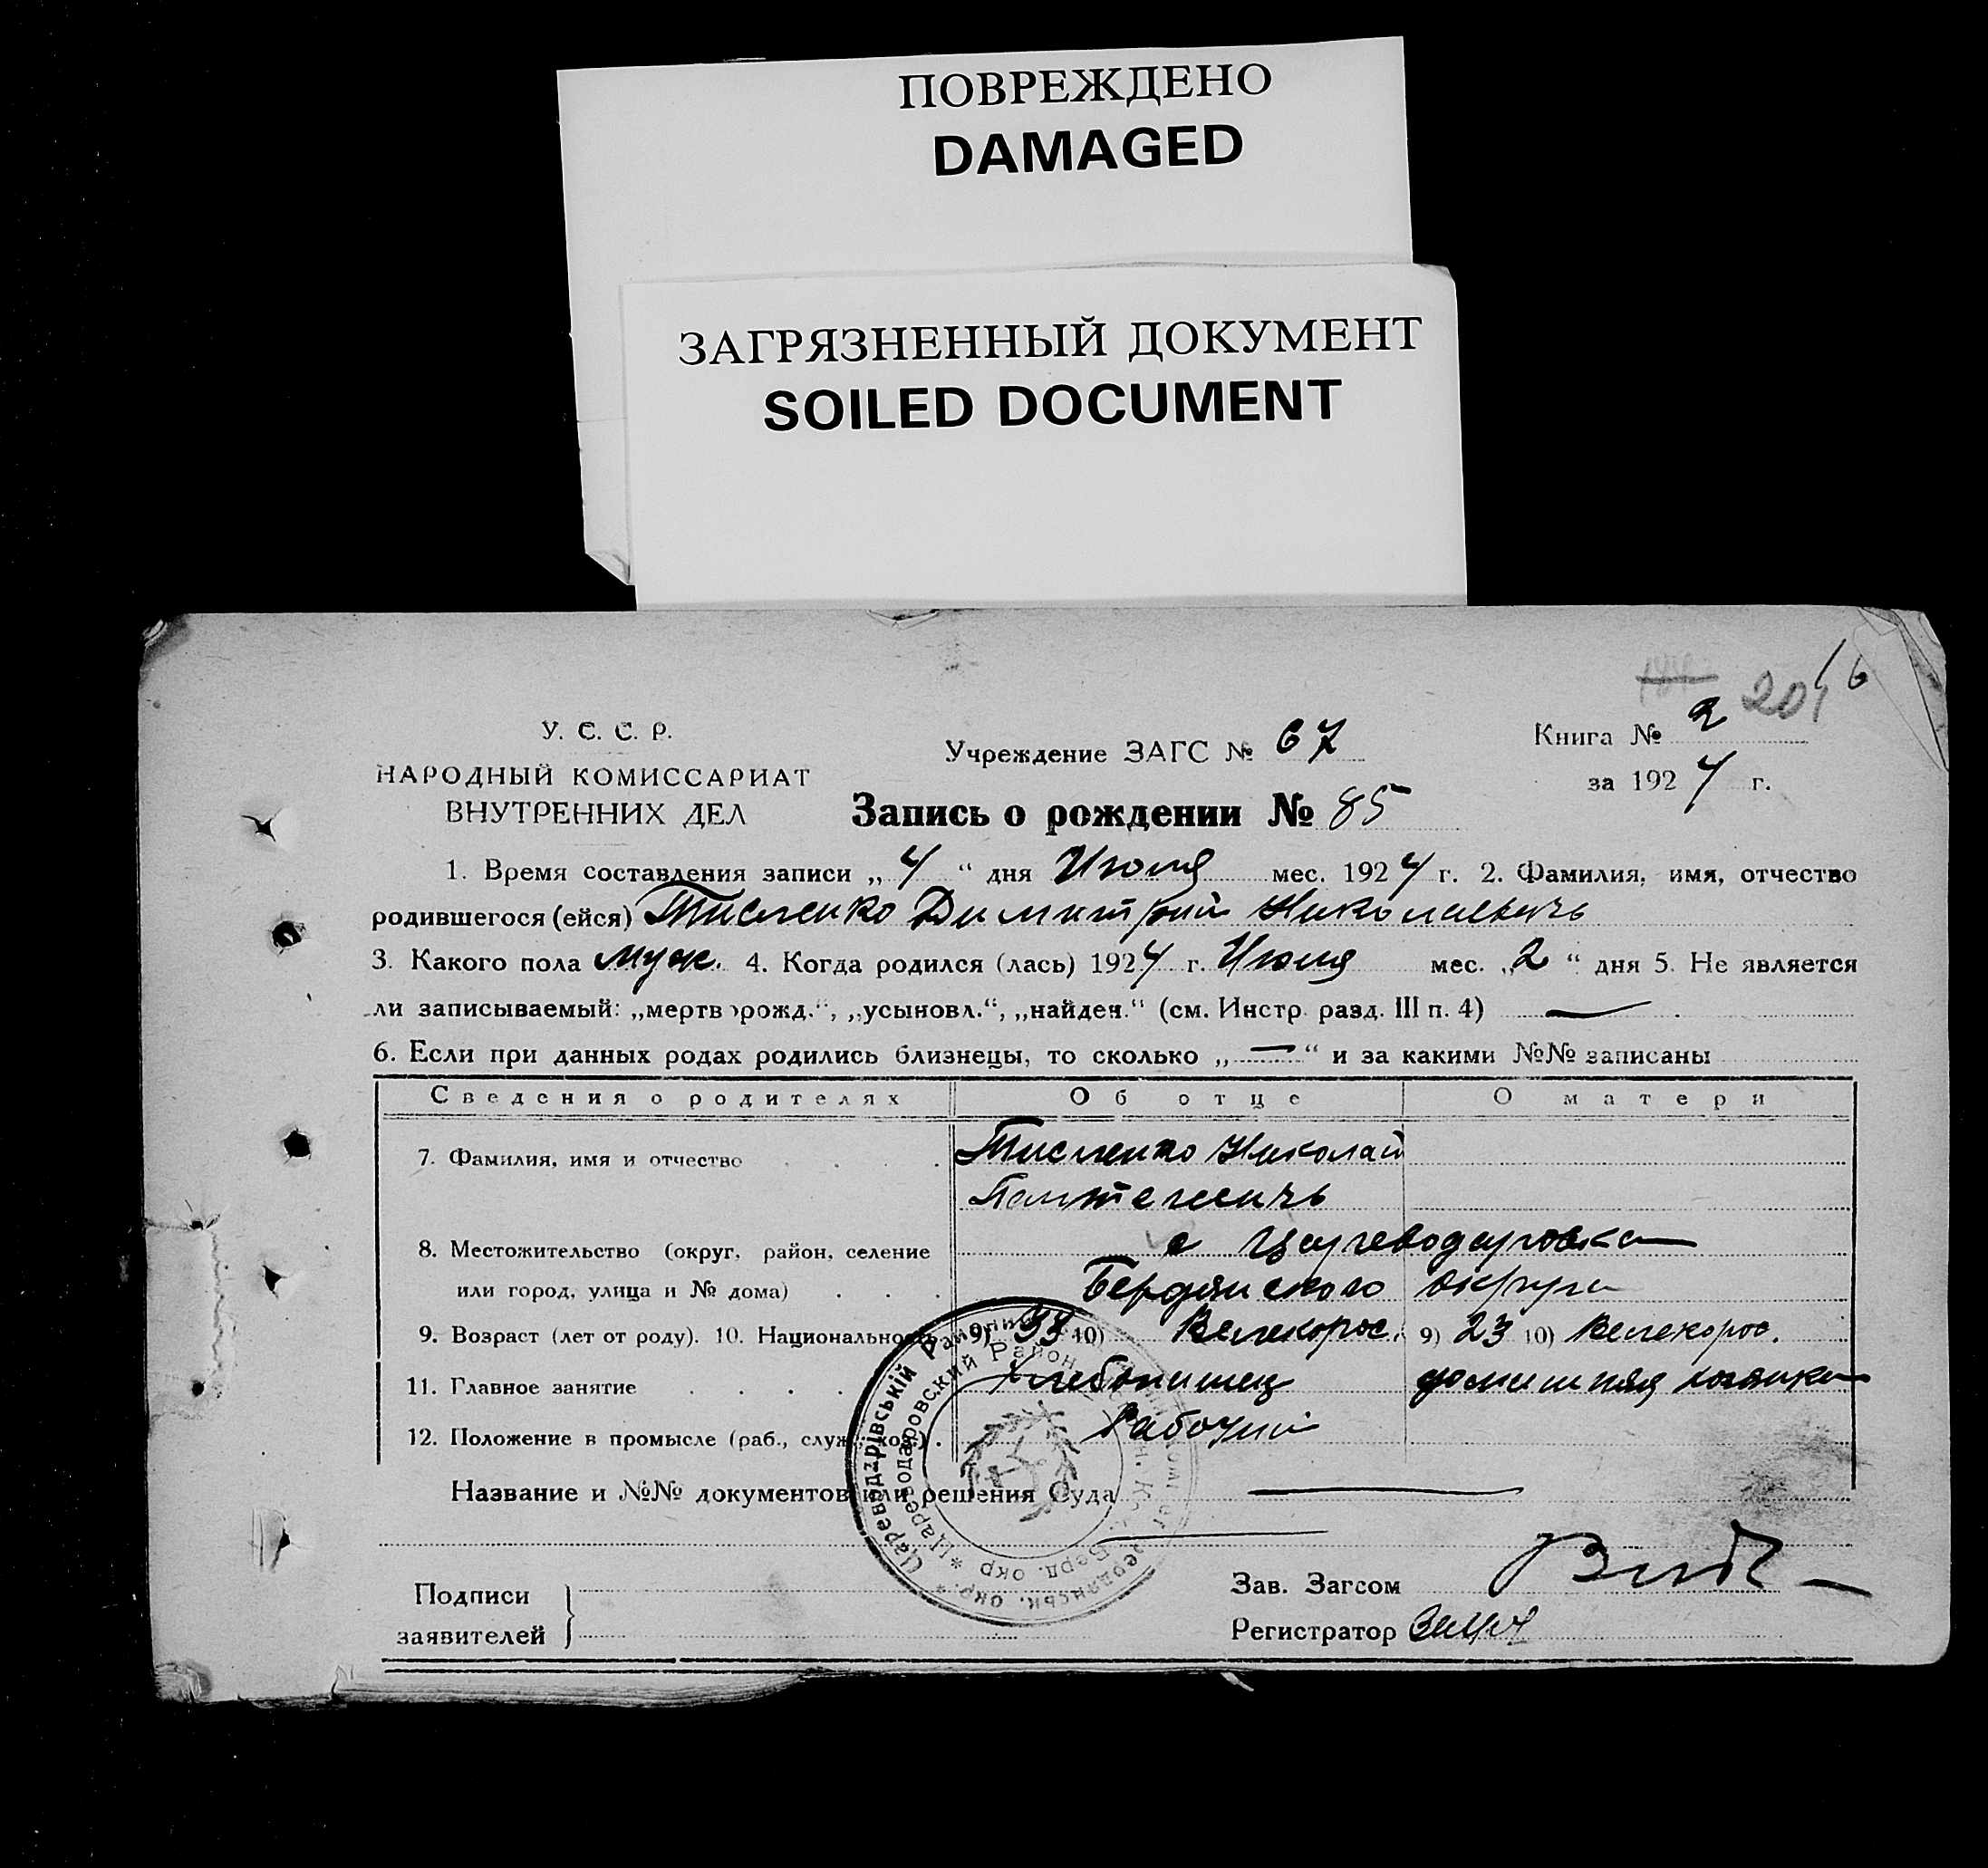 ПОВРЕЖДЕНО
DAMAGED
ЗАГРЯЗНЕННЫЙ ДОКУМЕНТ
SOILED DOCUMENT
16
20
У. С. С. Р.
НАРОДНЫЙ КОМИССАРИАТ
ВНУТРЕННИХ ДЕЛ
Учреждение ЗАГС № 67
Книга № 2
за 1924 г.
Запись о рождении № 85
1. Время составления записи „4“ дня Июля мес. 1924 г. 2. Фамилия, имя, отчество
родившегося (ейся) Тисленко Димитрий Николаевичъ
3. Какого пола муж. 4. Когда родился (лась) 1924 г. Июля мес. „2“ дня 5. Не является
ли записываемый: „мертворожд.“, „усыновл.“, „найден.“ (см. Инстр. разд. III п. 4) —
6. Если при данных родах родились близнецы, то сколько „—“ и за какими №№ записаны
Сведения о родителях Об отце О матери
7. Фамилия, имя и отчество Тисленко Николай
8. Местожительство (округ, район, селение с Цареводаровка
или город, улица и № дома) Бердянского округа
9. Возраст (лет от роду). 10. Национальность 9) 33 10) Велекорос. 9) 23 10) Велекорос.
11. Главное занятие Хлебопашец домашняя хозяйка
12. Положение в промысле (раб., служ., хоз.) Рабочий
Название и №№ документов или решения Суда —
Подписи
заявителей
Зав. Загсом
Регистратор
Царевода́рівській Район
Царевадаровский Район
Берд. окр.
Бердянськ. окр.